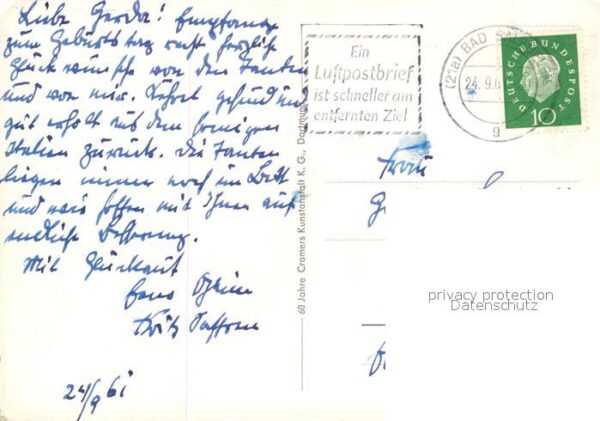 Liebe Gerda! Empfange
zum Geburtstag recht herzliche
Glückwünsche von den Tanten
und von mir. Kehrt gesund und
gut erholt aus dem sonnigen
Italien zurück. Die Tanten
liegen immer noch im Bett
und wir hoffen mit Ihnen auf
endliche Besserung.
Mit Glückauf
Fritz
24/9 61
60 Jahre Cramers Kunstanstalt K. G., Dortmund
Ein
Luftpostbrief
ist schneller am
entfernten Ziel
(21a) BAD
24. 9. 6
g
DEUTSCHE BUNDESPOST
10
Frau
privacy protection
Datenschutz